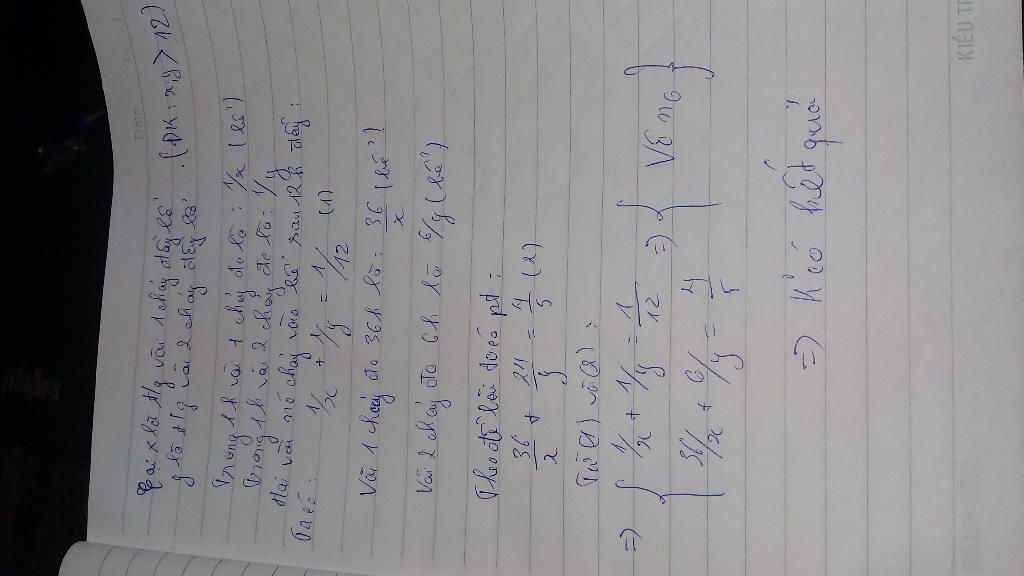 Date
Gọi x là t/g vòi 1 chảy đầy bể
y là t/g vòi 2 chảy đầy bể. (ĐK: x, y > 12)
Trong 1h vòi 1 chảy đc là: 1/x (bể)
Trong 1h vòi 2 chảy đc là: 1/y
Hai vòi nc chảy vào bể sau 12h đầy:
Ta có: 1/x + 1/y = 1/12 (1)
Vòi 1 chảy đc 36h là: 36/x (bể)
Vòi 2 chảy đc 6h là 6/y (bể)
Theo đề bài ta có pt:
36/x + 21/y = 4/5 (2)
Từ (1) và (2):
=> { 1/x + 1/y = 1/12 => { Vô no }
36/x + 6/y = 4/5
=> K có kết quả
KIỀU TR